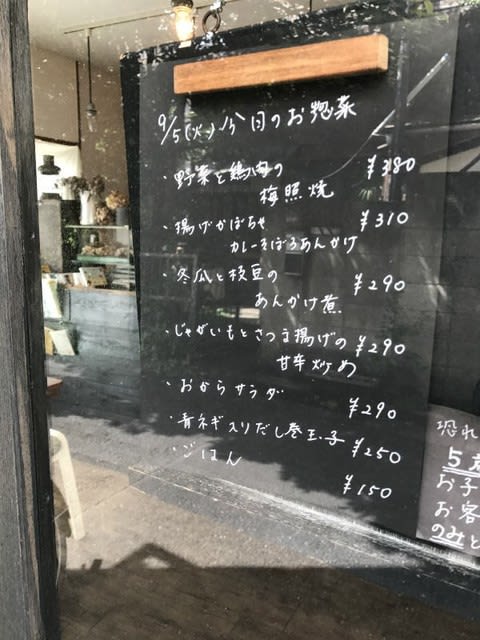 9/5(火)今日のお惣菜
・野菜と鶏肉の ¥380
梅照焼
・揚げかぼちゃ ¥310
カレーそぼろあんかけ
・冬瓜と枝豆の ¥290
あんかけ煮
・じゃがいもとさつま揚げの ¥290
甘辛炒め
・おからサラダ ¥290
・青ネギ入りだし巻玉子 ¥250
・ごはん ¥150
恐れ
5歳
お子
お客
のみと